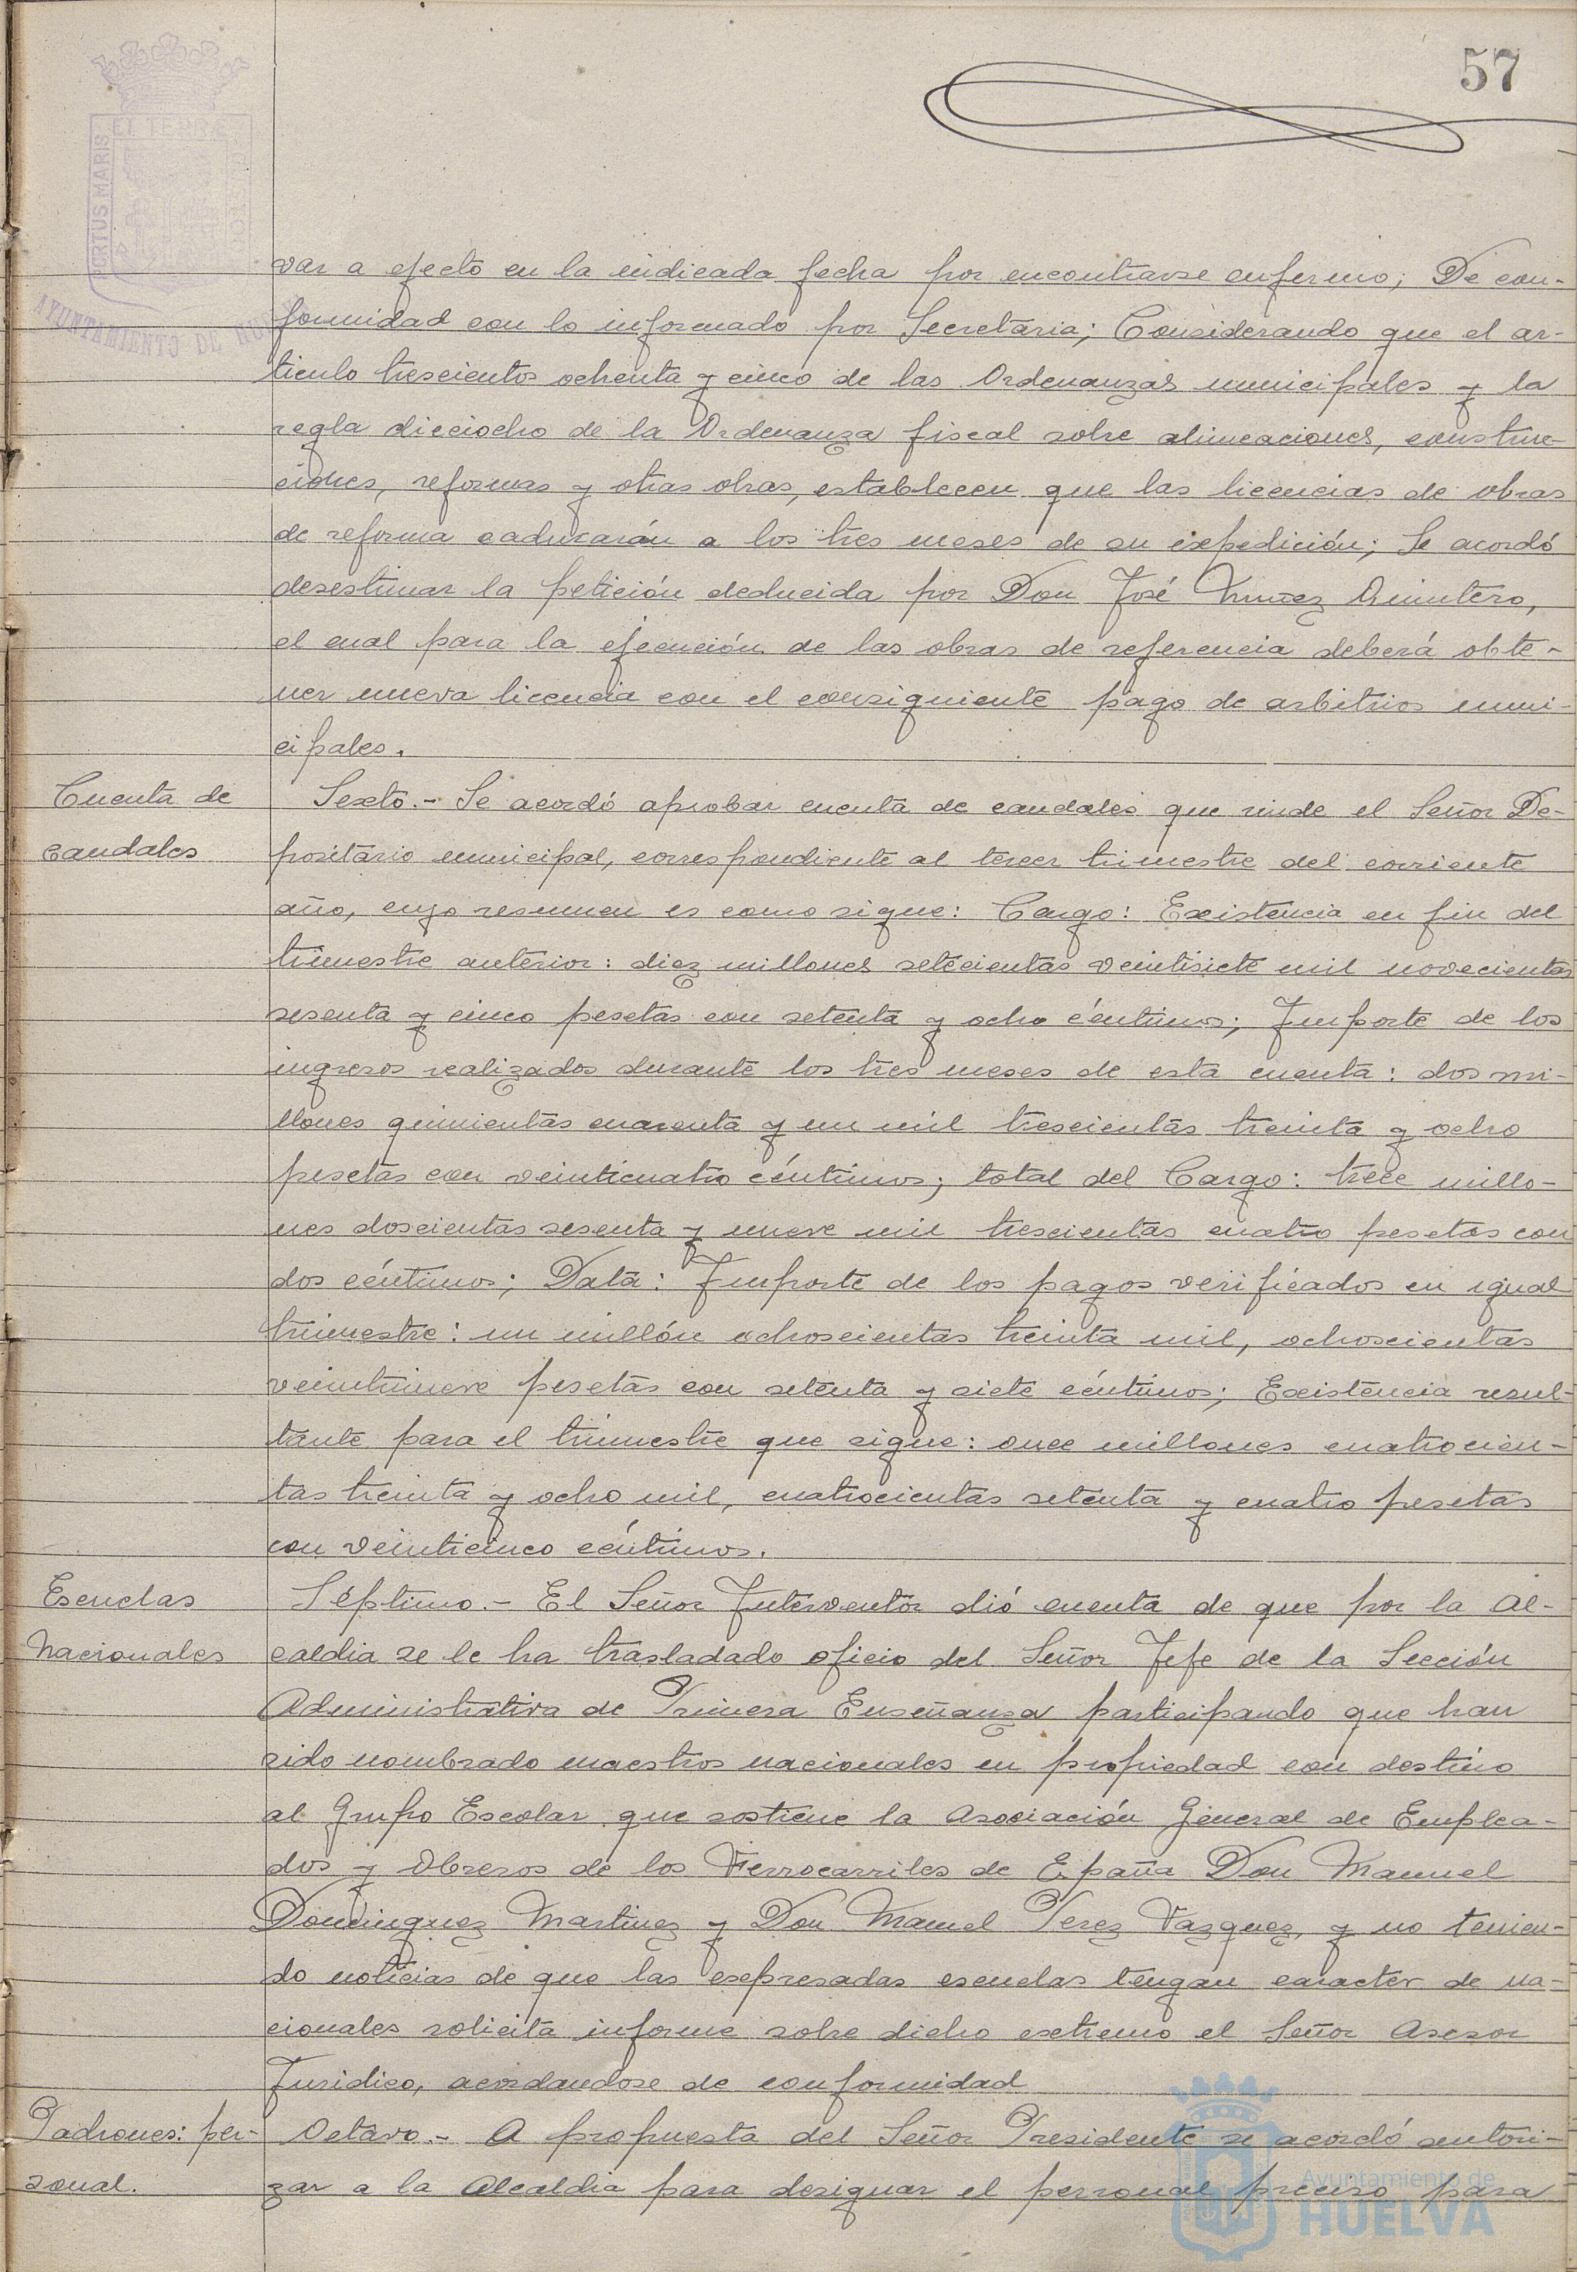 57
PORTUS MARIS
ET TERRÆ
CUSTODIA
AYUNTAMIENTO DE HUELVA
var a efecto en la indicada fecha por encontrarse enfermo; De con-
formidad con lo informado por Secretaria; Considerando que el ar-
ticulo trescientos ochenta y cinco de las Ordenanzas municipales y la
regla dieciocho de la Ordenanza fiscal sobre alineaciones, construc-
ciones, reformas y otras obras, establecen que las licencias de obras
de reforma caducarán a los tres meses de su expedición; Se acordó
desestimar la petición deducida por Don José Nuñez Quintero,
el cual para la ejecución de las obras de referencia deberá obte-
ner nueva licencia con el consiguiente pago de arbitrios muni-
cipales.
Cuenta de
caudales
Sexto.- Se acordó aprobar cuenta de caudales que rinde el Señor De-
positario municipal, correspondiente al tercer trimestre del corriente
año, cuyo resumen es como sigue: Cargo: Existencia en fin del
trimestre anterior: diez millones setecientas veintisiete mil novecientas
sesenta y cinco pesetas con setenta y ocho céntimos; Importe de los
ingresos realizados durante los tres meses de esta cuenta: dos mi-
llones quinientas cuarenta y un mil trescientas treinta y ocho
pesetas con veinticuatro céntimos; total del Cargo: trece millo-
nes doscientas sesenta y nueve mil trescientas cuatro pesetas con
dos céntimos; Data: Importe de los pagos verificados en igual
trimestre: un millón ochoscientas treinta mil, ochoscientas
veintinueve pesetas con setenta y siete céntimos; Existencia resul-
tante para el trimestre que sigue: once millones cuatrocien-
tas treinta y ocho mil, cuatrocientas setenta y cuatro pesetas
con veinticinco céntimos.
Escuelas
Nacionales
Séptimo.- El Señor Interventor dió cuenta de que por la Al-
caldia se le ha trasladado oficio del Señor Jefe de la Sección
Administrativa de Primera Enseñanza participando que han
sido nombrado maestros nacionales en propiedad con destino
al Grupo Escolar que sostiene la Asociación General de Emplea-
dos y Obreros de los Ferrocarriles de España Don Manuel
Dominguez Martinez y Don Manuel Perez Vazquez, y no tenien-
do noticias de que las expresadas escuelas tengan caracter de na-
cionales solicita informe sobre dicho extremo el Señor Asesor
Juridico, acordandose de conformidad
Padrones: per-
sonal.
Octavo.- A propuesta del Señor Presidente se acordó autori-
zar a la Alcaldia para designar el personal preciso para
Ayuntamiento de
HUELVA